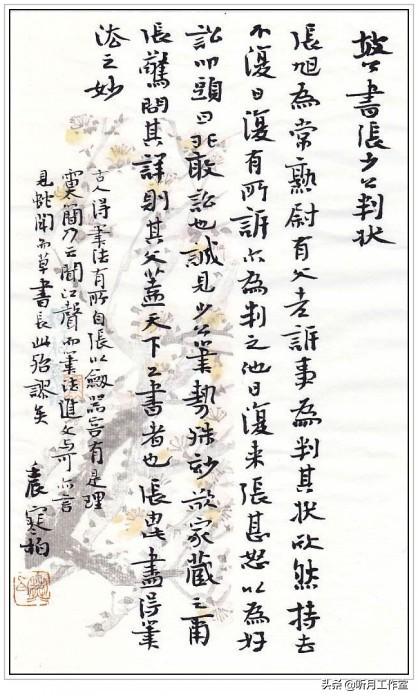 書張少公判状
張旭為常熟尉有父老訴事為判其状欣然持去
不復日復有所訴亦為判之他日復来張甚怒以為好
訟叩頭曰非敢訟也誠見少公筆勢殊妙欲家藏之爾
張驚問其詳則其父盖天下工書者也張盡得筆
法之妙
古人得筆法有所自張以劔器容有是理
雷簡乃云聞江聲而筆法進文与可亦言
見蛇鬪而草書長此殆謬矣
袁寒柏
头条 @听月工作室